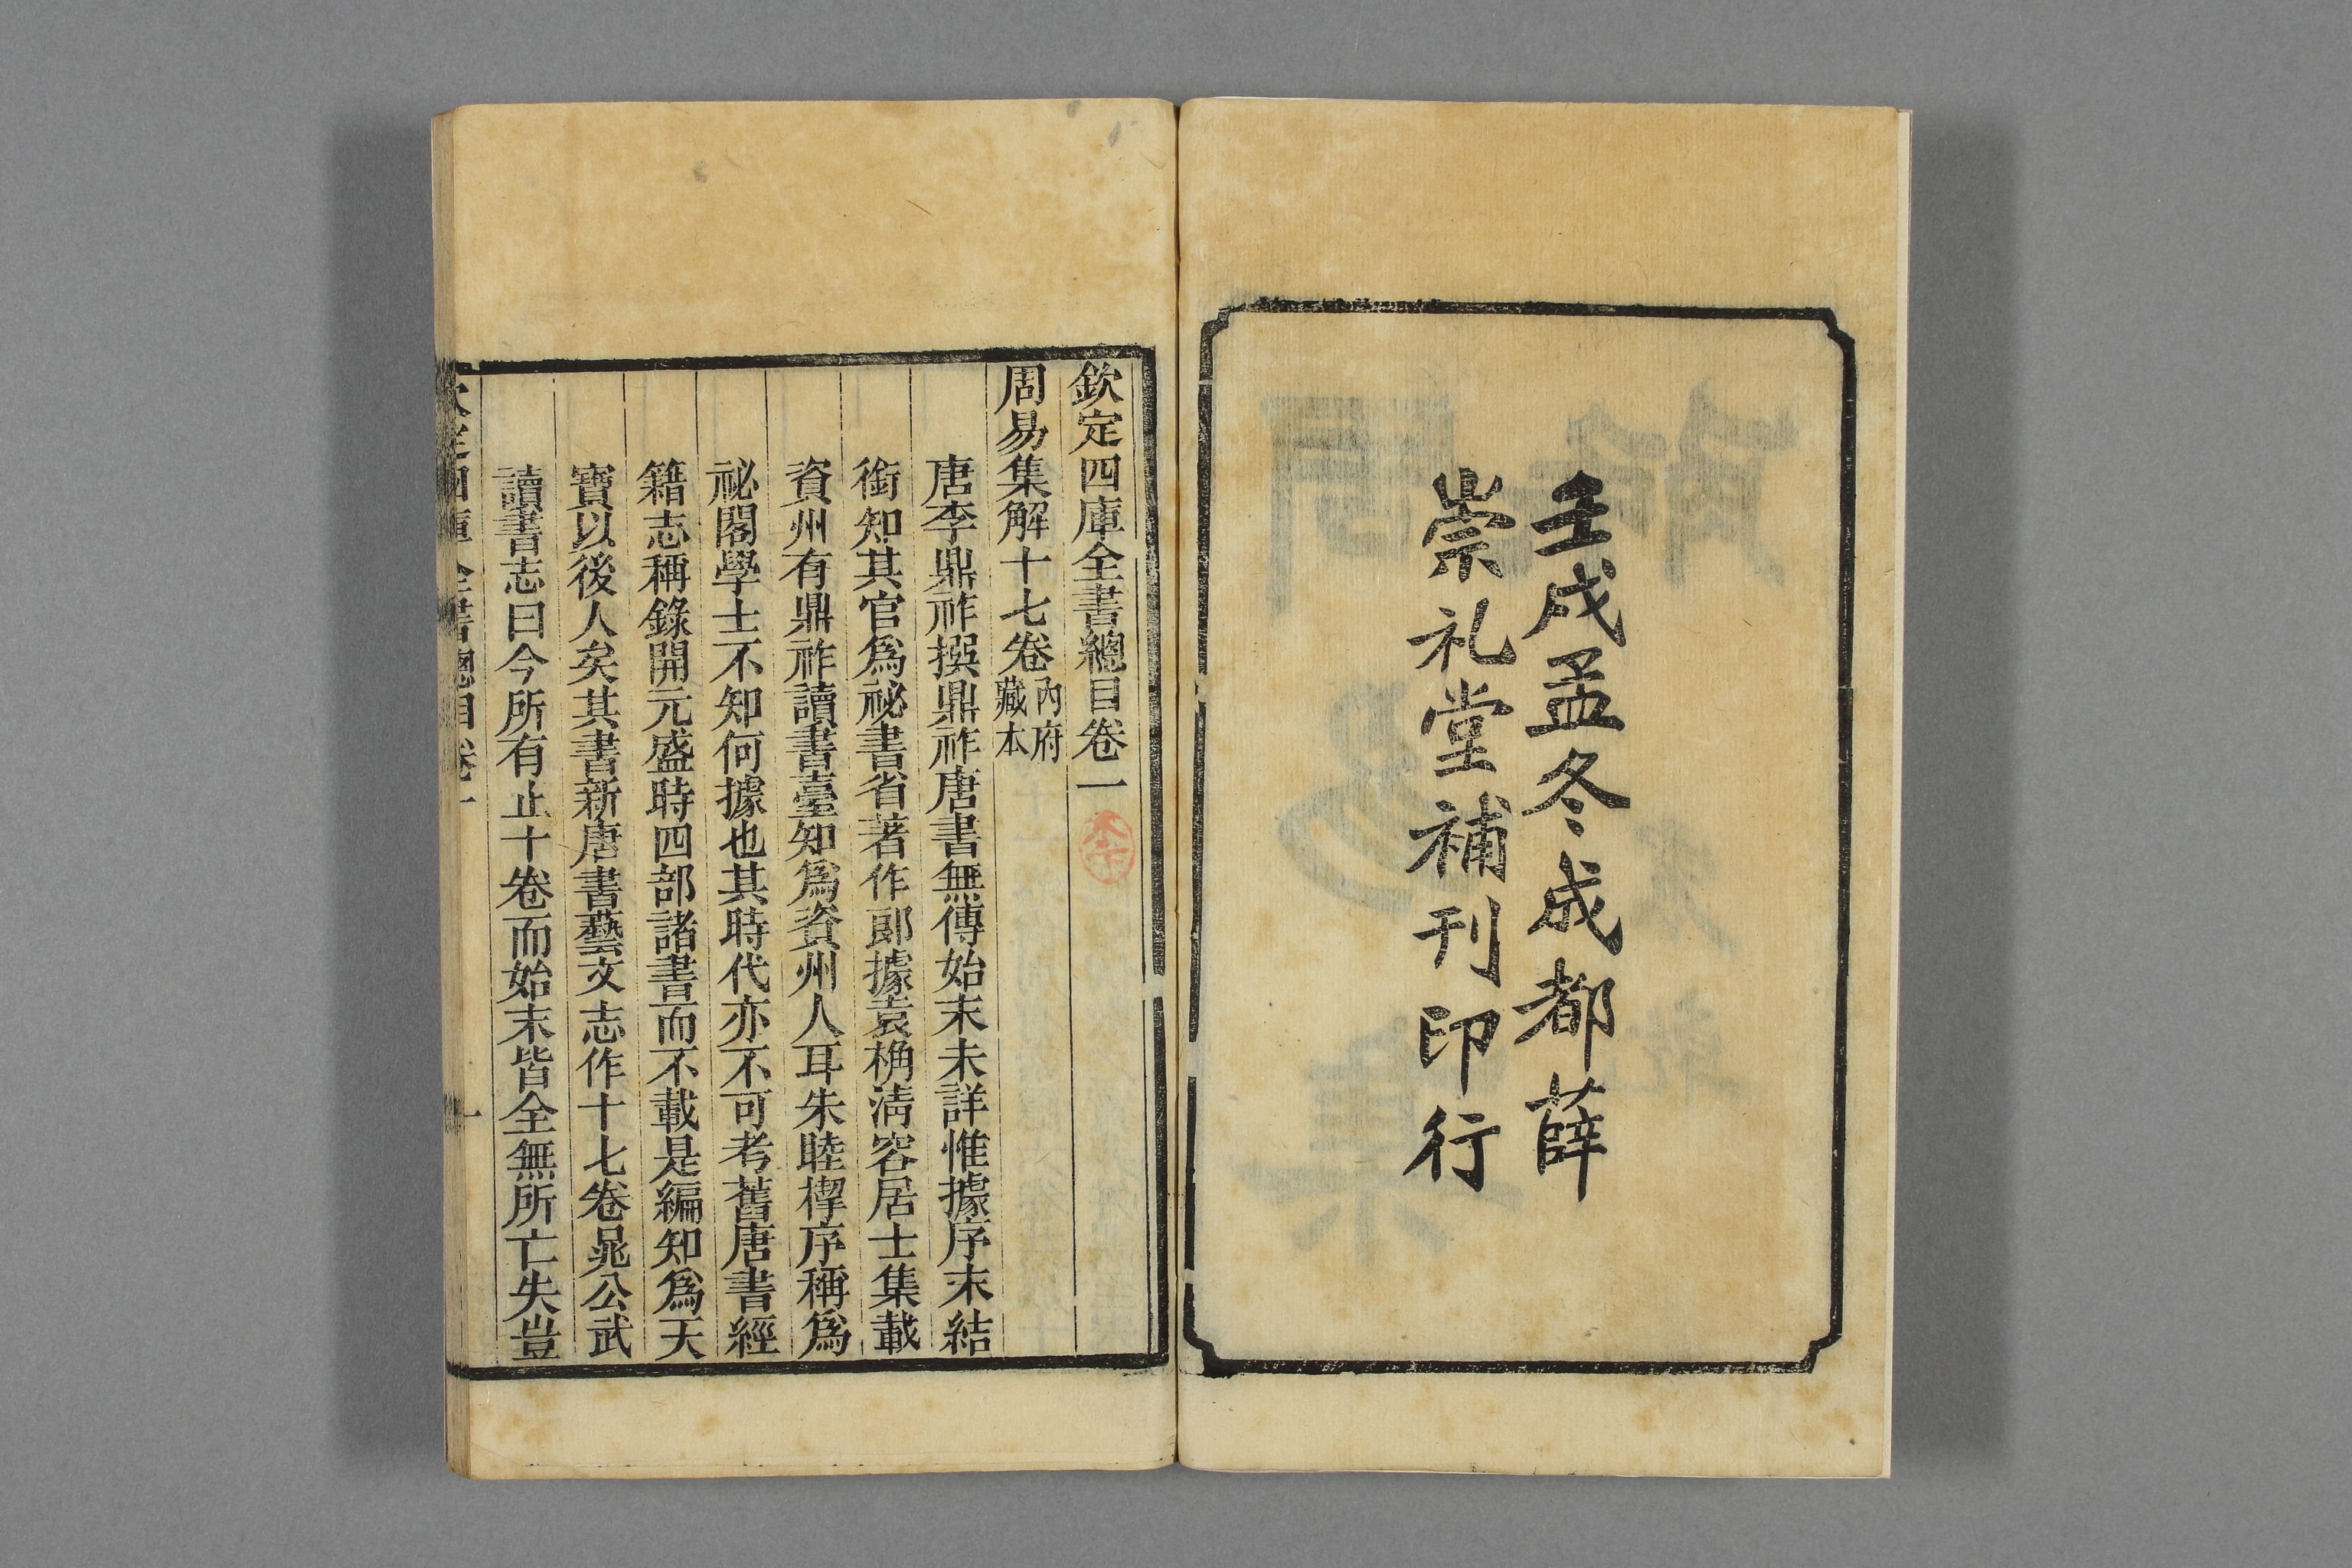 壬戌孟冬成都薛
崇礼堂補刊印行
欽定四庫全書總目卷一
周易集解十七卷內府藏本
唐李鼎祚撰鼎祚唐書無傳始末未詳惟據序末結
銜知其官爲祕書省著作郎據袁桷淸容居士集載
資州有鼎祚讀書臺知爲資州人耳朱睦㮮序稱爲
祕閣學士不知何據也其時代亦不可考舊唐書經
籍志稱錄開元盛時四部諸書而不載是編知爲天
寶以後人矣其書新唐書藝文志作十七卷晁公武
讀書志曰今所有止十卷而始末皆全無所亡失豈